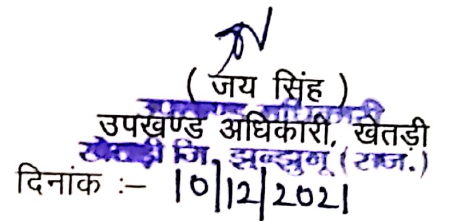 ( जय सिंह )
उपखण्ड अधिकारी
उपखण्ड अधिकारी, खेतड़ी
खेतड़ी जि. झुन्झुनू (राज.)
दिनांक :- 10/12/2021